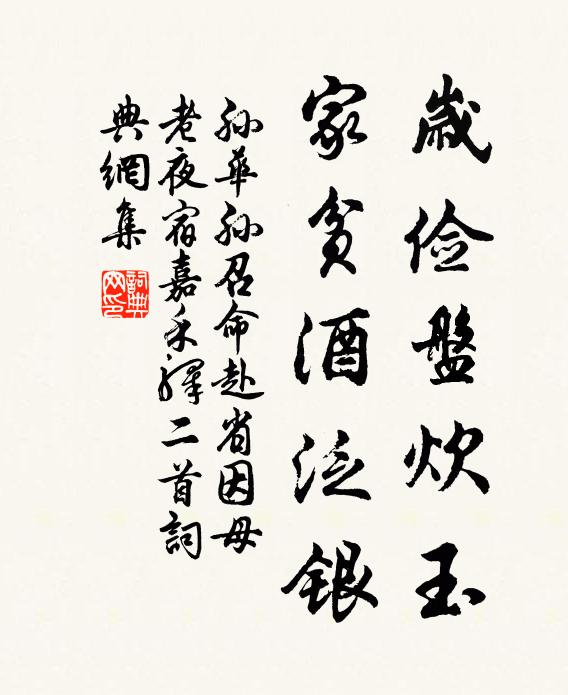 歲儉盤炊玉
家貧酒泛銀
孫華孫召命赴省因母
老夜宿嘉禾驛二首詞
典網集
詞典網印